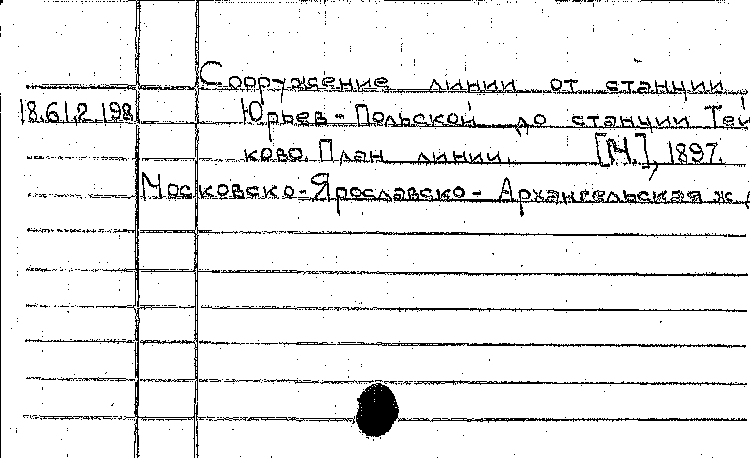 Сооружение линии от станции
18.61.2.198 Юрьев-Польской до станции Тей
ково. План линии. [М.], 1897.
Московско-Ярославско-Архангельская ж.д